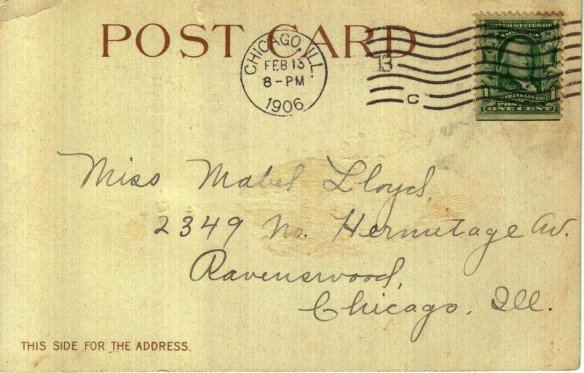 POST CARD
CHICAGO, ILL.
FEB 13
8-PM
1906
C
FRANKLIN
ONE CENT
Miss Mabel Lloyd,
2349 No. Hermitage Av.
Ravenswood,
Chicago, Ill.
THIS SIDE FOR THE ADDRESS.